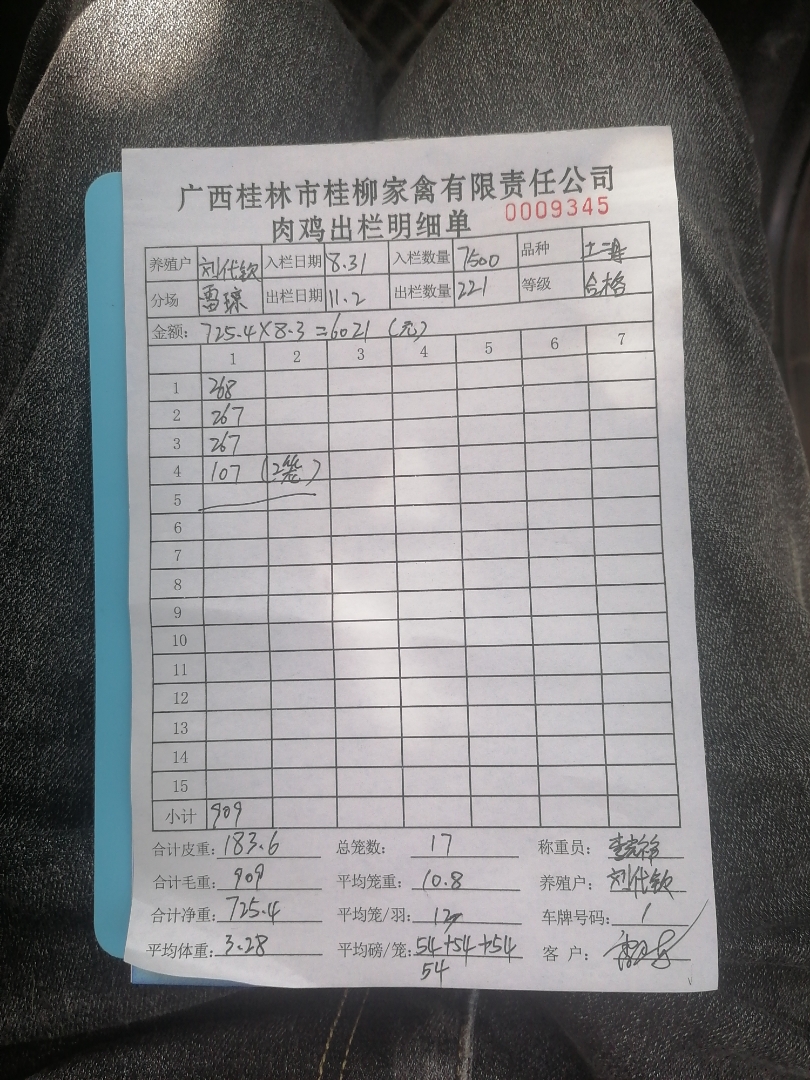 广西桂林市桂柳家禽有限责任公司
肉鸡出栏明细单 0009345
养殖户 刘代钦 入栏日期 8.31 入栏数量 7500 品种 土二
分场 雪琼 出栏日期 11.2 出栏数量 221 等级 合格
金额: 725.4×8.3=6021(元)
1 2 3 4 5 6 7
1 268
2 267
3 267
4 107 (2笼)
5
6
7
8
9
10
11
12
13
14
15
小计 909
合计皮重: 183.6 总笼数: 17 称重员:
合计毛重: 909 平均笼重: 10.8 养殖户: 刘代钦
合计净重: 725.4 平均笼/羽: 12 车牌号码: /
平均体重: 3.28 平均磅/笼: 54+54+54 客户:
54